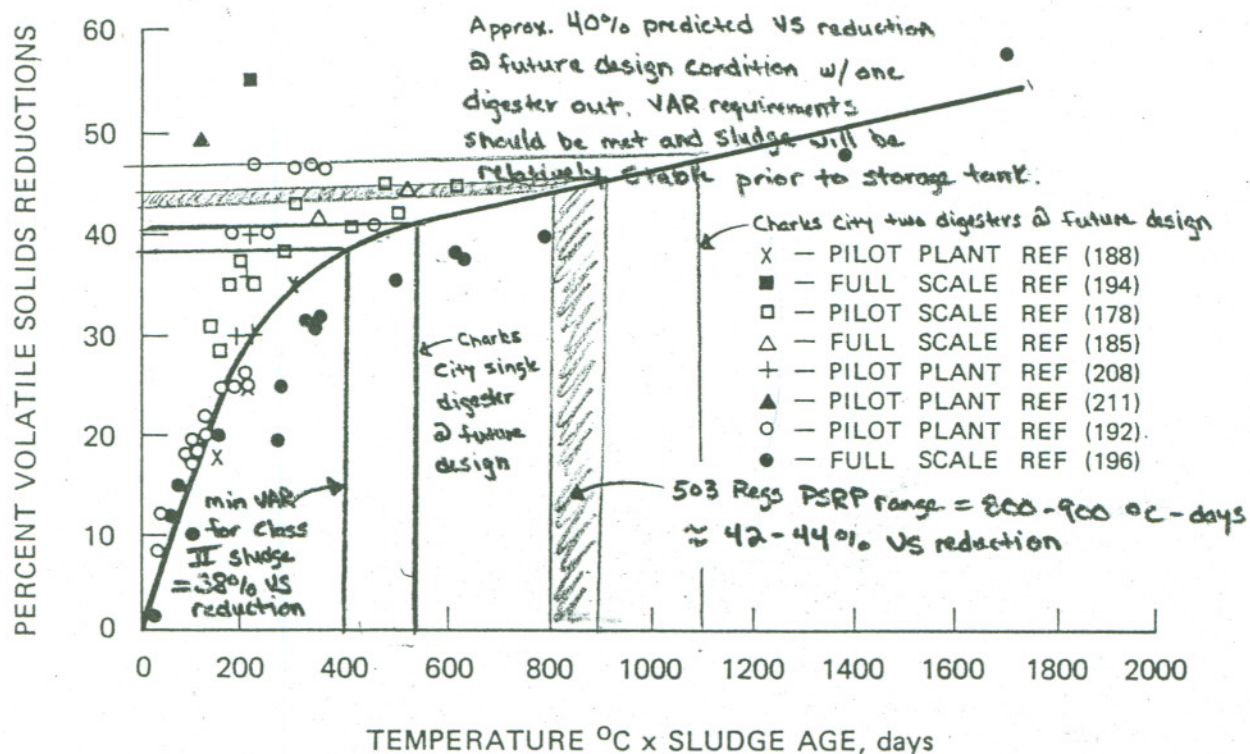 PERCENT VOLATILE SOLIDS REDUCTIONS
60
50
40
30
20
10
0
Approx. 40% predicted VS reduction
@ future design condition w/ one
digester out. VAR requirements
should be met and sludge will be
relatively stable prior to storage tank.
Charles City two digesters @ future design
X — PILOT PLANT REF (188)
■ — FULL SCALE REF (194)
□ — PILOT SCALE REF (178)
△ — FULL SCALE REF (185)
+ — PILOT PLANT REF (208)
▲ — PILOT PLANT REF (211)
○ — PILOT PLANT REF (192)
● — FULL SCALE REF (196)
Charles
City single
digester
@ future
design
min VAR
for Class
II sludge
= 38% VS
reduction
503 Regs PSRP range = 800-900 °C-days
≈ 42-44% VS reduction
0 200 400 600 800 1000 1200 1400 1600 1800 2000
TEMPERATURE °C x SLUDGE AGE, days